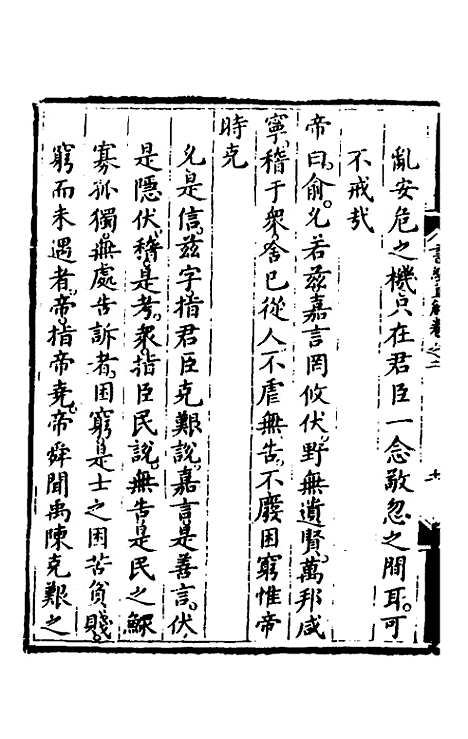 亂安危之機只在君臣一念敬忽之間耳可
不戒哉
帝曰俞允若茲嘉言罔攸伏野無遺賢萬邦咸
寧稽于衆舍已從人不虐無告不廢困窮惟帝
時克
允是信茲字指君臣克艱說嘉言是善言伏
是隱伏稽是考衆指臣民說無告是民之鰥
寡孤獨無處告訴者困窮是士之困苦貧賤
窮而未遇者帝指帝堯帝舜聞禹陳克艱之